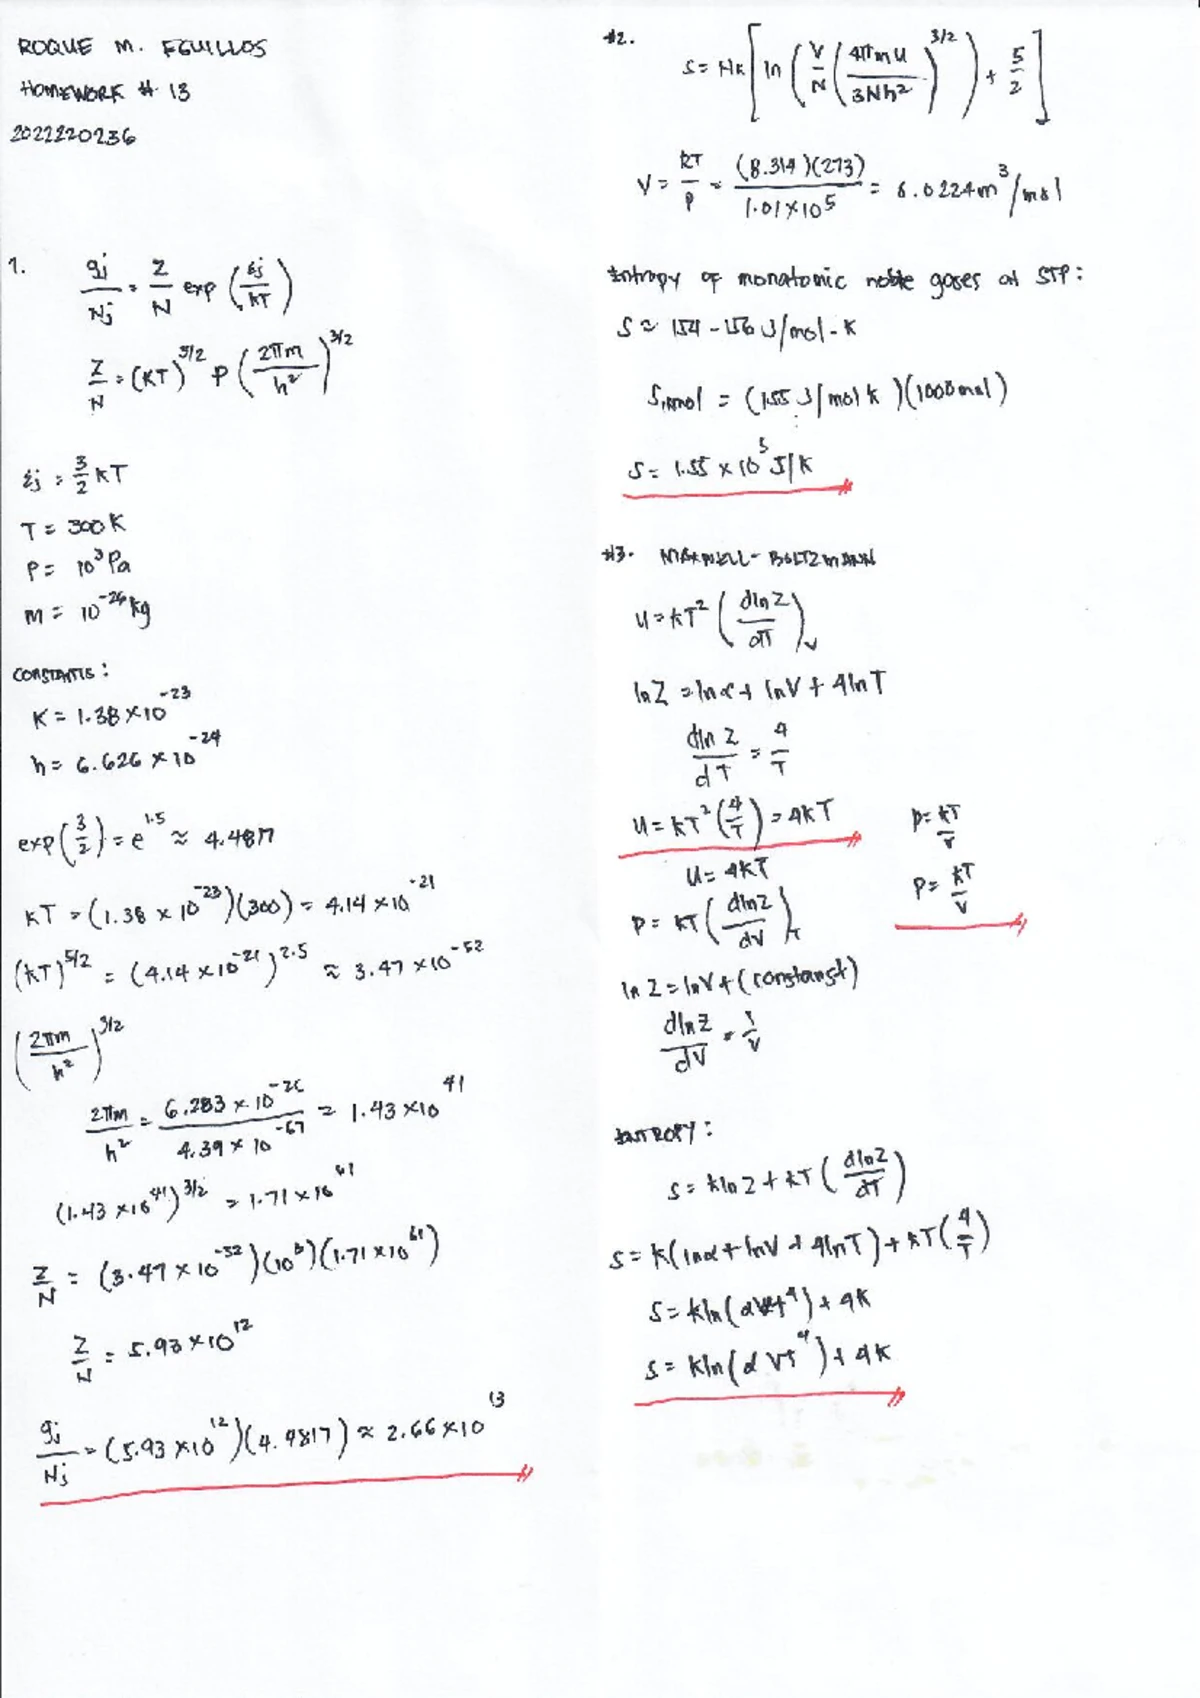 ROQUE M. EGUILLOS
HOMEWORK # 13
2022220236
1. gj/Nj = Z/N exp (εj/kT)
Z/N = (KT)^5/2 P (2πm/h²)^3/2
εj = 3/2 KT
T = 300K
P = 10³ Pa
m = 10^-26 kg
CONSTANTS:
K = 1.38 × 10^-23
h = 6.626 × 10^-24
exp(3/2) = e^1.5 ≈ 4.4817
KT = (1.38 × 10^-23)(300) = 4.14 × 10^-21
(KT)^5/2 = (4.14 × 10^-21)^2.5 ≈ 3.47 × 10^-52
(2πm/h²)^3/2
2πm/h² = 6.283 × 10^-26 / 4.39 × 10^-67 = 1.43 × 10^41
(1.43 × 10^41)^3/2 = 1.71 × 10^61
Z/N = (3.47 × 10^-52)(10^3)(1.71 × 10^61)
Z/N = 5.93 × 10^12
gj/Nj = (5.93 × 10^12)(4.4817) ≈ 2.66 × 10^13
#2.
S = Nk [ln (V/N (4πmU/3Nh²)^3/2) + 5/2]
V = KT/P = (8.314)(273)/1.01×10^5 = 6.0224 m³/mol
Entropy of monatomic noble gases at STP:
S ≈ 154 - 156 J/mol-K
S1kmol = (155 J/mol k)(1000mol)
S = 1.55 × 10^5 J/K
#3. MAXWELL-BOLTZMANN
U = kT² (dlnZ/dT)V
lnZ = lnα + lnV + 4lnT
dlnZ/dT = 4/T
U = kT² (4/T) = 4KT
U = 4KT
P = KT (dlnZ/dV)T
P = KT/V
P = KT/V
lnZ = lnV + (constanst)
dlnZ/dV = 1/V
ENTROPY:
S = klnZ + KT (dlnZ/dT)
S = K(lnα + lnV + 4lnT) + KT(4/T)
S = Kln(αVT^4) + 4K
S = Kln(αVT^4) + 4K